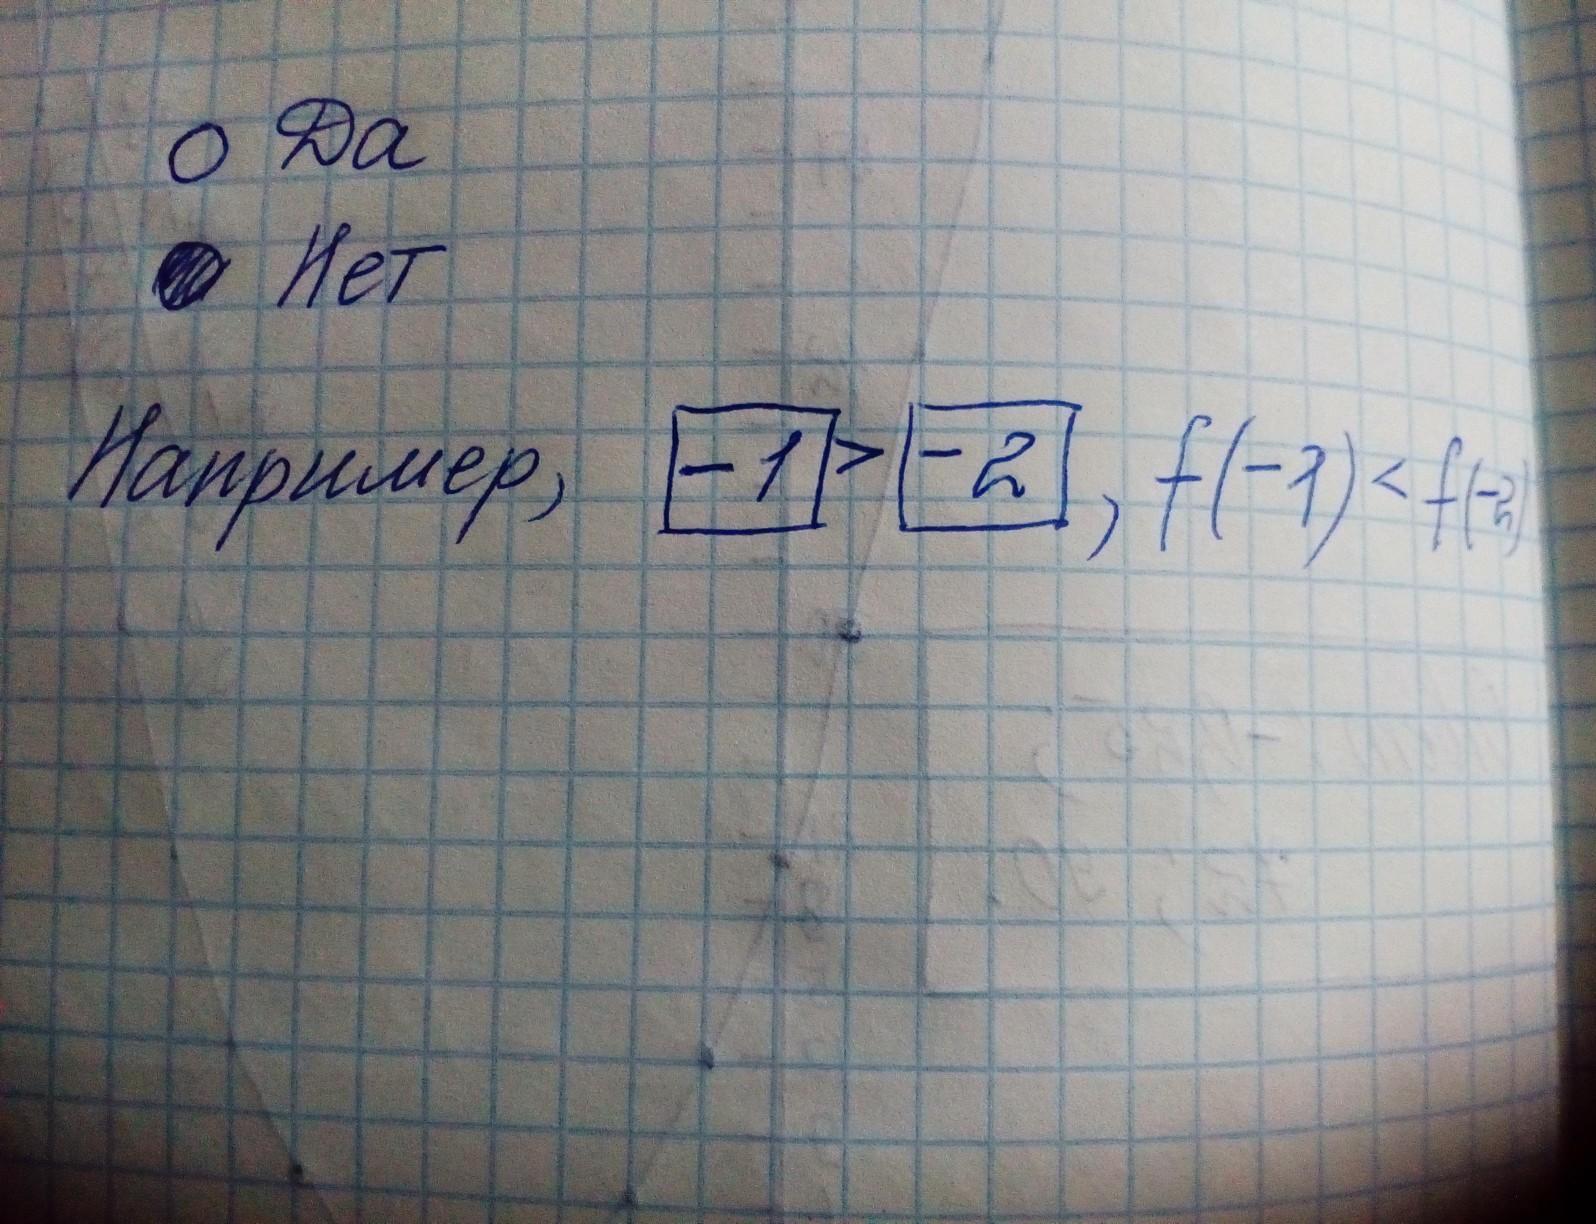 Да
Нет
Например, -1 > -2, f(-1) < f(-2)